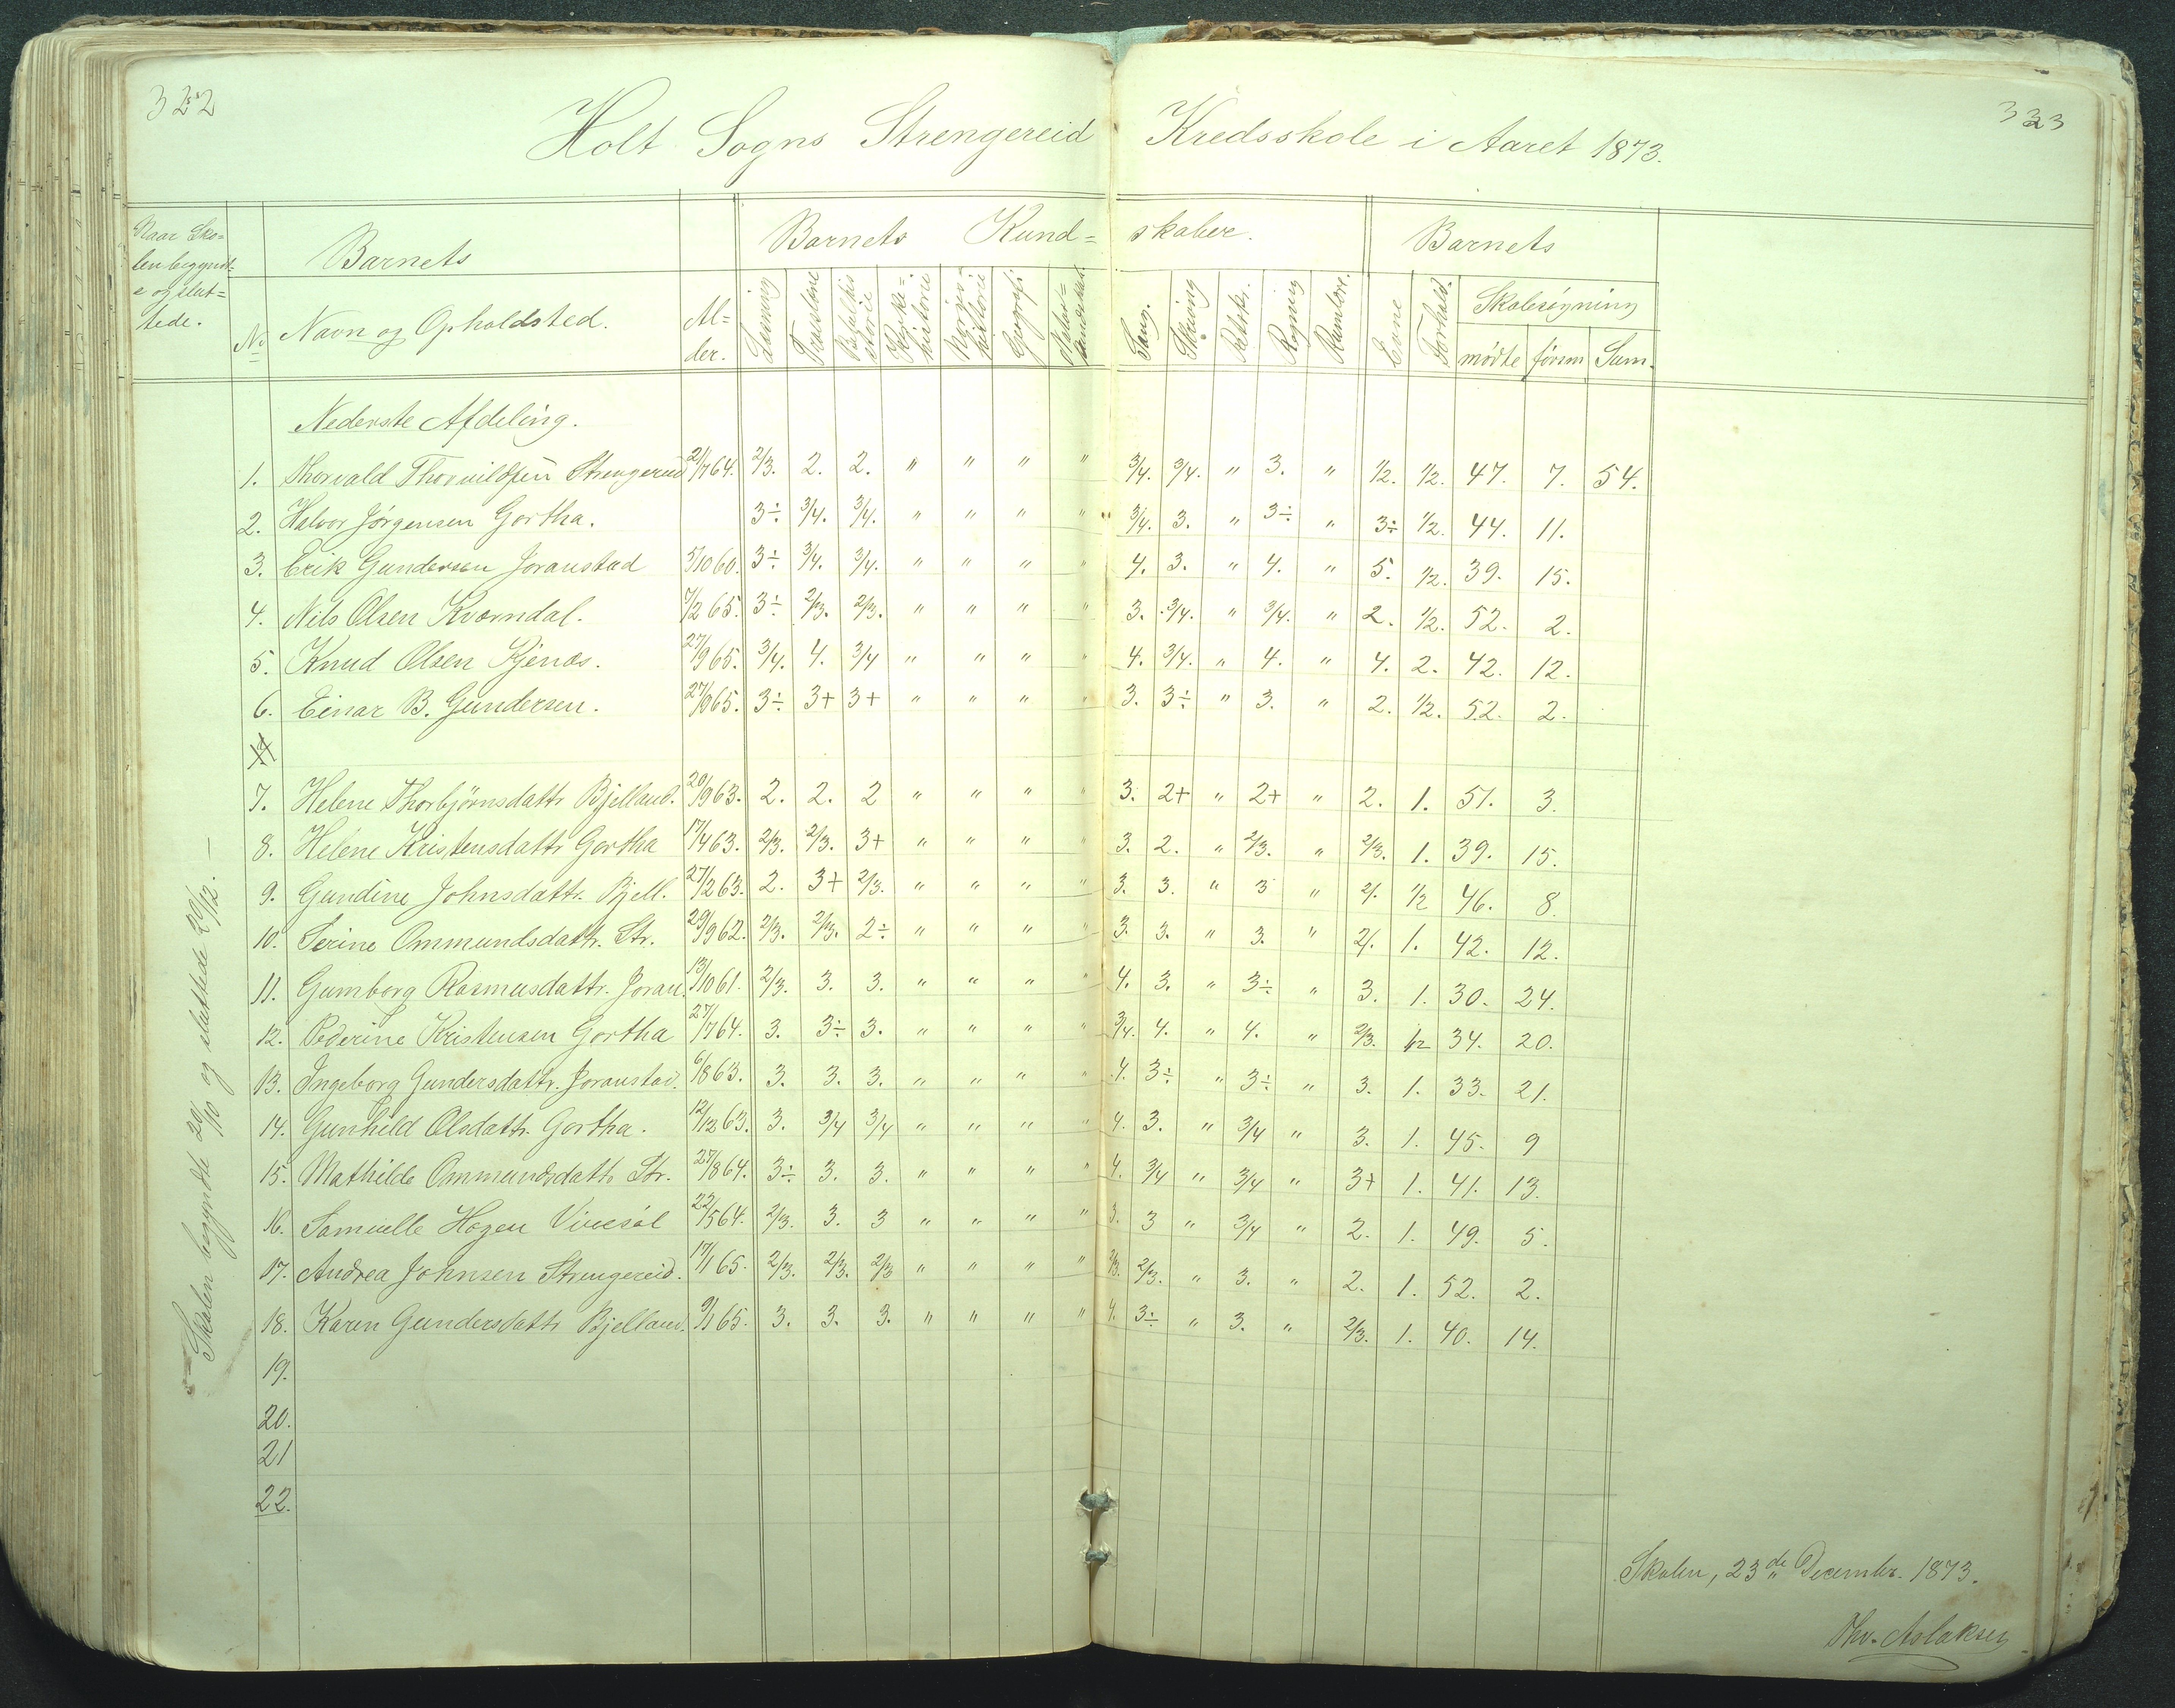 322
323
Holt Sogns Strengereid Kredsskole i Aaret 1873.
Naar Sko=
len begynd=
e og slut=
tede.
No
Barnets
Navn og Opholdsted.
Al=
der.
Barnets Kund= skaber.
Læsning Troeslære Bibelhis torie Kirke= historie Norges historie Geografi Sang. Skrivning Retskr. Regning Rumlære.
Barnets
Evne Forhold. Skolesøgning
mødte försm Sum.
Nederste Afdeling.
1. Thorvald Thorvildsen Strengereid 21/7 64. 2/3. 2. 2. " " " " 3/4. 3/4. " 3. " 1/2. 1/2. 47. 7. 54.
2. Halvor Jörgensen Gortha. 3÷ 3/4. 3/4. " " " " 3/4. 3. " 3÷ " 3÷ 1/2. 44. 11.
3. Erik Gundersen Joranstad 5/10 60. 3÷ 3/4. 3/4. " " " " 4. 3. " 4. " 5. 1/2. 39. 15.
4. Nils Olsen Kværndal. 7/2 65. 3÷ 2/3. 2/3. " " " " 3. 3/4. " 3/4. " 2. 1/2. 52. 2.
5. Knud Olsen Kjenæs. 27/9 65. 3/4. 4. 3/4 " " " " 4. 3/4. " 4. " 4. 2. 42. 12.
6. Einar B. Gundersen. 27/9 65. 3÷ 3+ 3+ " " " " 3. 3÷ " 3. " 2. 1/2. 52. 2.
7. Helene Thorbjörnsdattr Bjelland. 20/9 63. 2. 2. 2 " " " " 3. 2+ " 2+ " 2. 1. 51. 3.
8. Helene Kristensdattr Gortha 17/4 63. 2/3. 2/3. 3+ " " " " 3. 2. " 2/3. " 2/3. 1. 39. 15.
9. Gundine Johnsdattr. Bjell. 27/2 63. 2. 3+ 2/3. " " " " 3. 3. " 3 " 2/. 1/2 46. 8.
10. Serine Ommundsdattr. Str. 29/9 62. 2/3. 2/3. 2÷ " " " " 3. 3. " 3. " 2/. 1. 42. 12.
11. Gumborg Rasmusdattr. Joran. 13/10 61. 2/3. 3. 3. " " " " 4. 3. " 3÷ " 3. 1. 30. 24.
12. Pederine Kristensen Gortha 27/7 64. 3. 3÷ 3. " " " " 3/4. 4. " 4. " 2/3. 1/2 34. 20.
13. Ingeborg Gundersdattr. Joranstad. 6/8 63. 3. 3. 3. " " " " 4. 3÷ " 3÷ " 3. 1. 33. 21.
14. Gunhild Olsdattr. Gortha. 12/12 63. 3. 3/4 3/4 " " " " 4. 3. " 3/4 " 3. 1. 45. 9
15. Mathilde Ommundsdattr Str. 27/8 64. 3÷ 3. 3. " " " " 4. 3/4 " 3/4 " 3+ 1. 41. 13.
16. Samuelle Hagen 22/5 64. 2/3. 3. 3 " " " " 3. 3 " 3/4 " 2. 1. 49. 5.
17. Andrea Johnsen Strengereid. 17/1 65. 2/3. 2/3. 2/3 " " " " 2/3. 2/3. " 3. " 2. 1. 52. 2.
18. Karen Gundersdattr Bjelland. 9/1 65. 3. 3. 3. " " " " 4. 3÷ " 3. " 2/3. 1. 40. 14.
19.
20.
21
22.
Skolen begyndte 20/10 og sluttede 20/12. —
Skolen, 23de Decembr. 1873.
Thv. Aslaksen